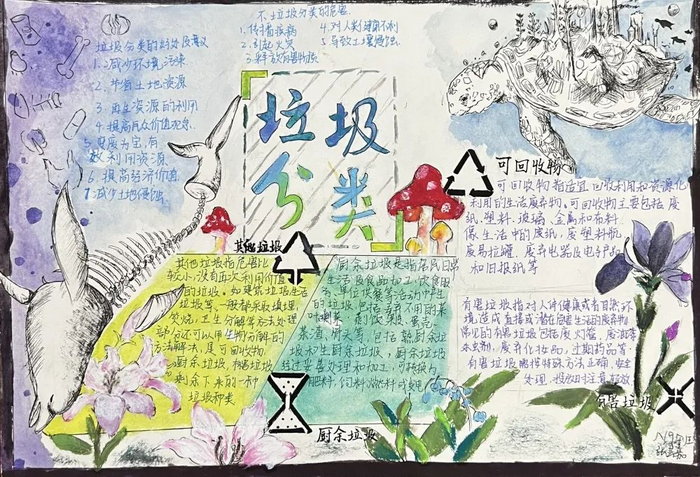 垃圾分类的好处及意义
1.减少环境污染
2.节省土地资源
3.再生资源的利用
4.提高民众价值观念
5.变废为宝,有
效利用资源
6.提高经济价值
7.减少土地侵蚀
不垃圾分类的危害
1.传播疾病
2.引起火灾
3.释放有害物质
4.对人类健康不利
5.导致土壤侵蚀
垃圾
分类
可回收物
可回收物指适宜回收利用和资源化
利用的生活废弃物,可回收物主要包括废
纸,塑料,玻璃,金属和布料
像生活中的废纸,废塑料瓶
废易拉罐,废弃电器及电子产品
和旧报纸等
其他垃圾
其他垃圾指危害比
较小,没有再次利用价值
的垃圾,如建筑垃圾生活
垃圾等,一般都采取填埋
焚烧,卫生分解等方法处理
部分还可以用生物分解的
方法解决,是可回收物
厨余垃圾,有害垃圾
剩余下来的一种
垃圾种类
厨余垃圾是指居民日常
生活及食品加工,饮食服
务,单位供餐等活动中产生
的垃圾,包括丢弃不用的菜
叶,剩菜,剩饭,果皮,蛋壳
茶渣,骨头等,包括熟厨余垃
圾和生厨余垃圾,厨余垃圾
经过妥善处理和加工,可转换为
肥料,饲料,燃料
厨余垃圾
有害垃圾指对人体健康或者自然环
境造成直接或潜在危害生活的废弃物
常见的有害垃圾包括废灯管,废油漆
杀虫剂,废弃化妆品,过期药品等
有害垃圾需按特殊方法正确,安全
处理,投放时注意轻放
有害垃圾